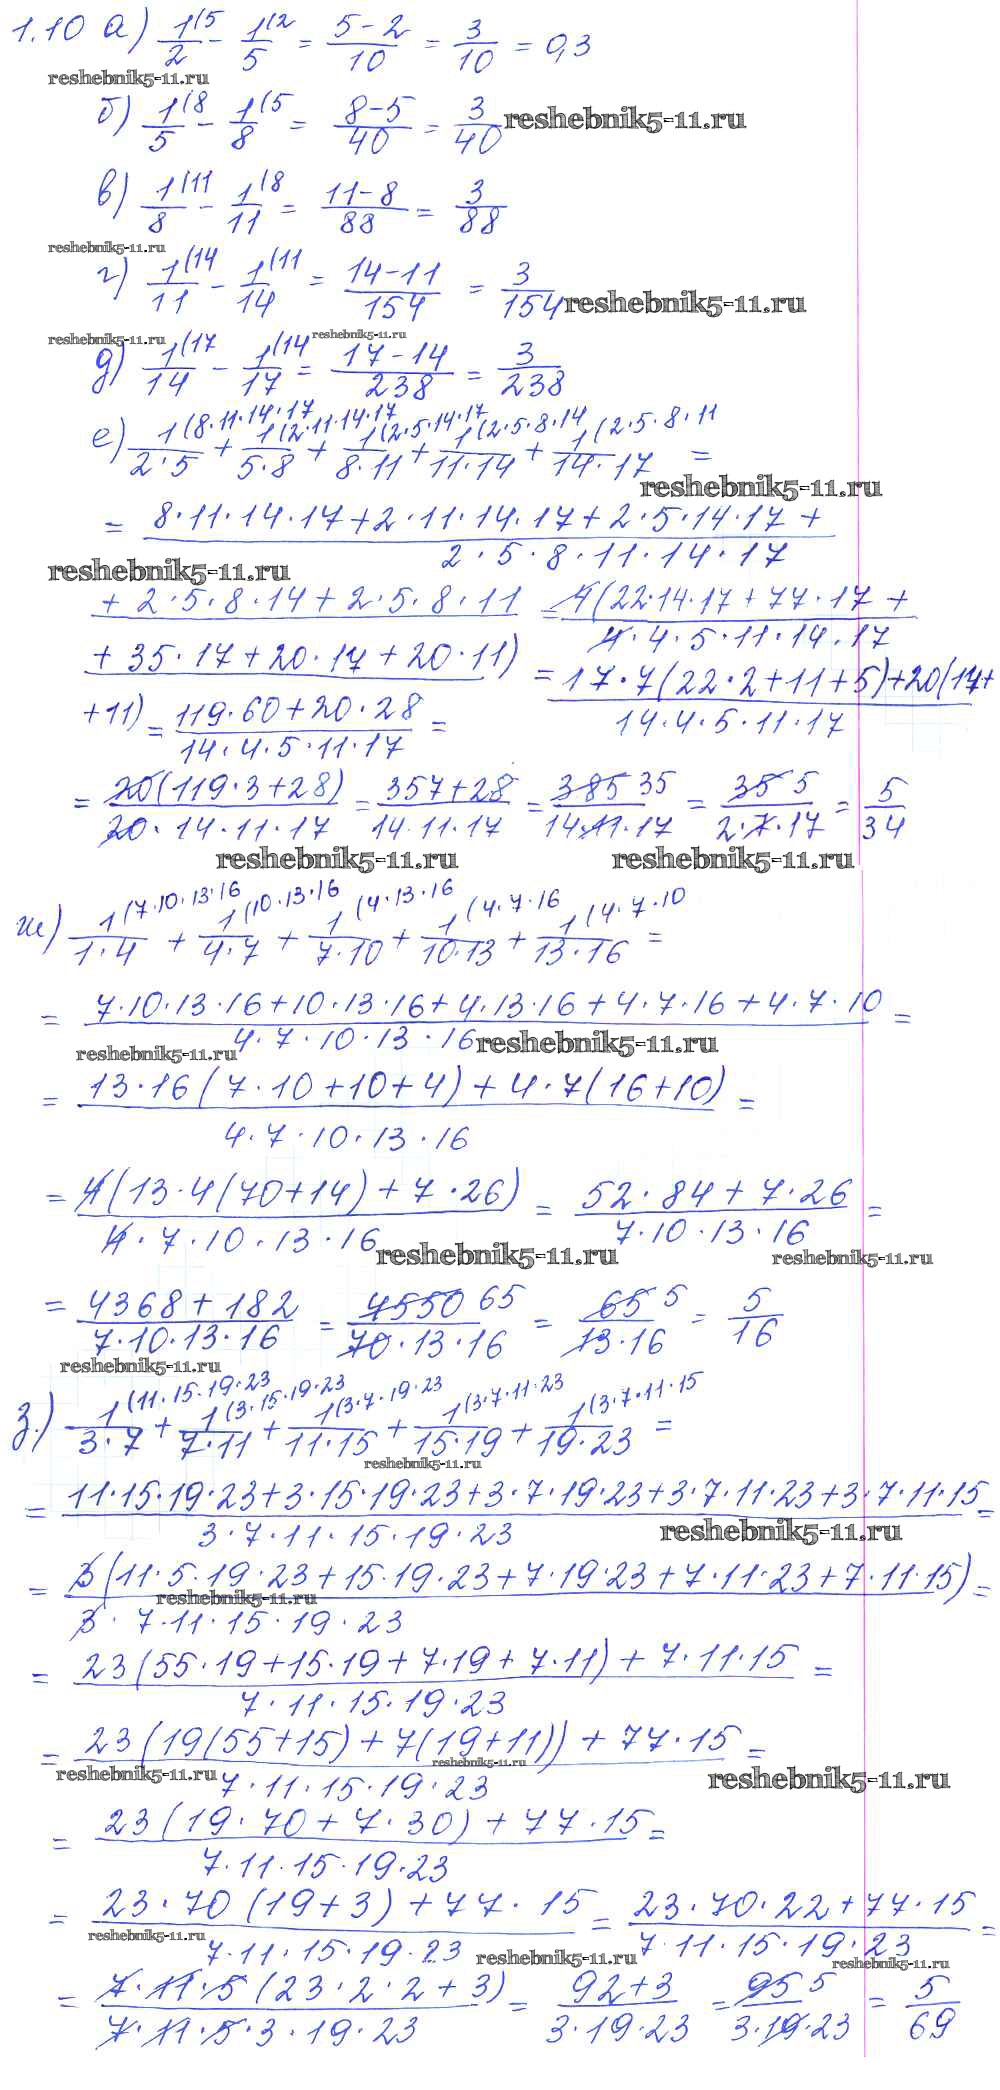 1.10 а) 1(5/2 − 1(2/5 = 5−2/10 = 3/10 = 0,3
reshebnik5-11.ru
б) 1(8/5 − 1(5/8 = 8−5/40 = 3/40 reshebnik5-11.ru
в) 1(11/8 − 1(8/11 = 11−8/88 = 3/88
reshebnik5-11.ru
г) 1(14/11 − 1(11/14 = 14−11/154 = 3/154 reshebnik5-11.ru
reshebnik5-11.ru reshebnik5-11.ru
д) 1(17/14 − 1(14/17 = 17−14/238 = 3/238
е) 1(8·11·14·17/2·5 + 1(2·11·14·17/5·8 + 1(2·5·14·17/8·11 + 1(2·5·8·14/11·14 + 1(2·5·8·11/14·17 =
reshebnik5-11.ru
= 8·11·14·17+2·11·14·17+2·5·14·17+/2·5·8·11·14·17
reshebnik5-11.ru
+2·5·8·14+2·5·8·11 = 4(22·14·17+77·17+/4·4·5·11·14·17
+35·17+20·17+20·11) = 17·7(22·2+11+5)+20(17+/14·4·5·11·17
+11) = 119·60+20·28/14·4·5·11·17 =
= 20(119·3+28)/20·14·11·17 = 357+28/14·11·17 = 385 35/14·11·17 = 35 5/2·7·17 = 5/34
reshebnik5-11.ru reshebnik5-11.ru
ж) 1(7·10·13·16/1·4 + 1(10·13·16/4·7 + 1(4·13·16/7·10 + 1(4·7·16/10·13 + 1(4·7·10/13·16 =
= 7·10·13·16+10·13·16+4·13·16+4·7·16+4·7·10/4·7·10·13·16 =
reshebnik5-11.ru reshebnik5-11.ru
= 13·16(7·10+10+4)+4·7(16+10)/4·7·10·13·16 =
= 4(13·4(70+14)+7·26)/4·7·10·13·16 = 52·84+7·26/7·10·13·16 =
reshebnik5-11.ru reshebnik5-11.ru
= 4368+182/7·10·13·16 = 4550 65/70·13·16 = 65 5/13·16 = 5/16
reshebnik5-11.ru
з.) 1(11·15·19·23/3·7 + 1(3·15·19·23/7·11 + 1(3·7·19·23/11·15 + 1(3·7·11·23/15·19 + 1(3·7·11·15/19·23 =
reshebnik5-11.ru
= 11·15·19·23+3·15·19·23+3·7·19·23+3·7·11·23+3·7·11·15/3·7·11·15·19·23 =
reshebnik5-11.ru
= 3(11·5·19·23+15·19·23+7·19·23+7·11·23+7·11·15)/3·7·11·15·19·23 =
reshebnik5-11.ru
= 23(55·19+15·19+7·19+7·11)+7·11·15/7·11·15·19·23 =
= 23(19(55+15)+7(19+11))+77·15/7·11·15·19·23 =
reshebnik5-11.ru reshebnik5-11.ru reshebnik5-11.ru
= 23(19·70+7·30)+77·15/7·11·15·19·23 =
= 23·70(19+3)+77·15/7·11·15·19·23 = 23·70·22+77·15/7·11·15·19·23 =
reshebnik5-11.ru reshebnik5-11.ru reshebnik5-11.ru
= 7·11·5(23·2·2+3)/7·11·5·3·19·23 = 92+3/3·19·23 = 95 5/3·19·23 = 5/69